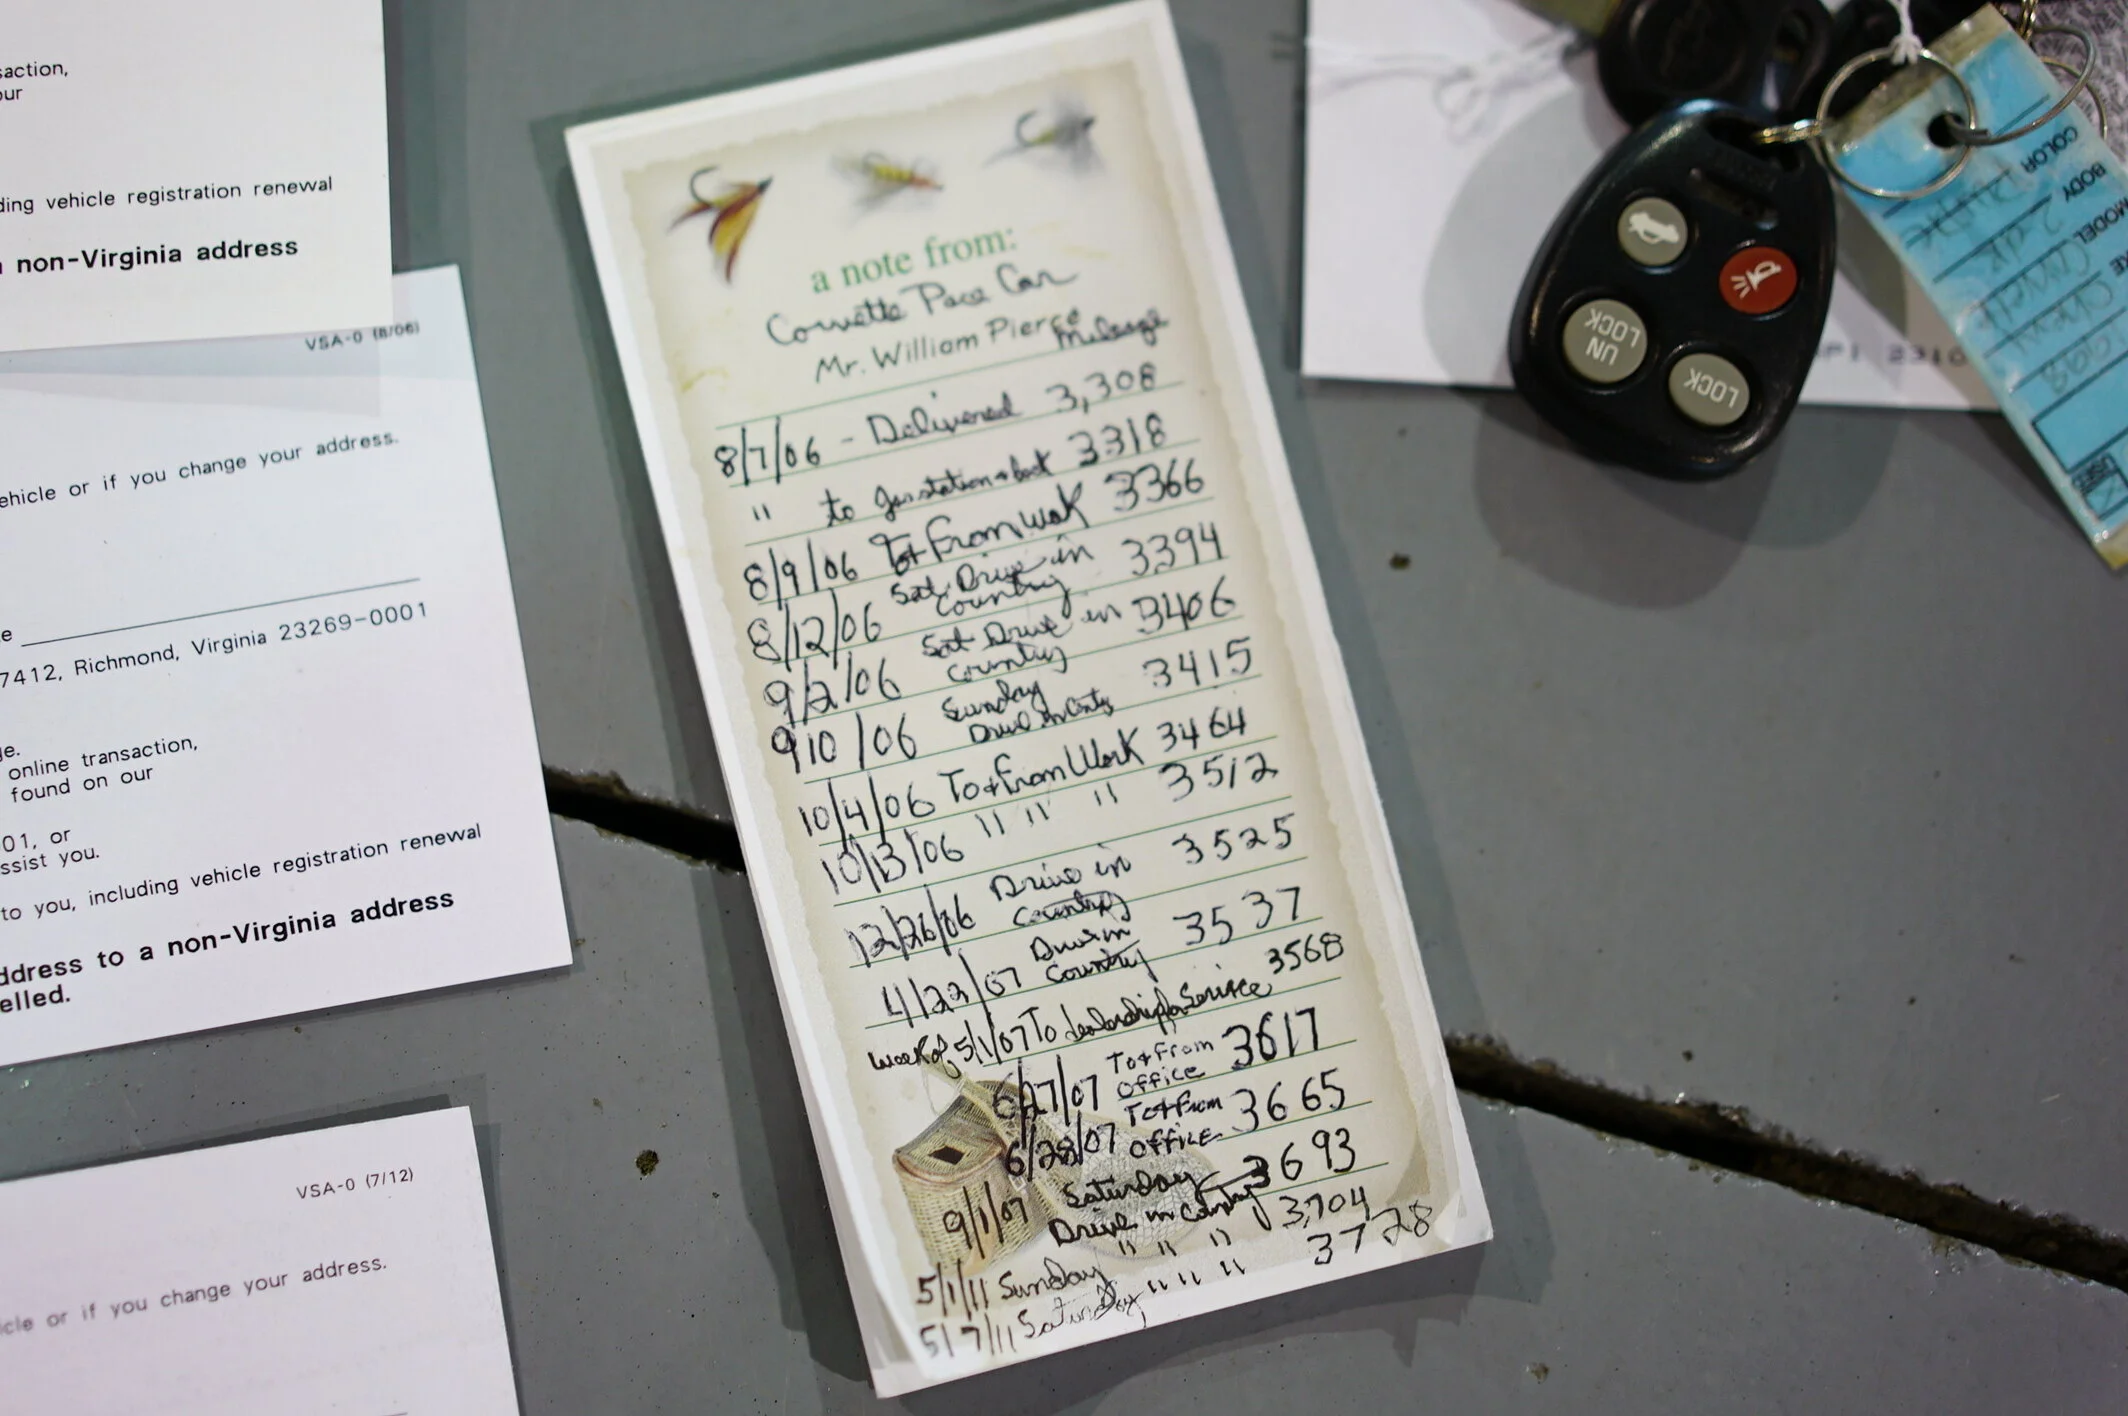 saction,
our
ding vehicle registration renewal
non-Virginia address
VSA-0 (8/06)
ehicle or if you change your address.
e
7412, Richmond, Virginia 23269-0001
ge.
online transaction,
found on our
01, or
ssist you.
to you, including vehicle registration renewal
ddress to a non-Virginia address
elled.
VSA-0 (7/12)
icle or if you change your address.
a note from:
Corvette Pace Car
Mr. William Pierce
Mileage
8/7/06 - Delivered 3,308
" to gas station & back 3318
8/9/06 To & From work 3366
8/12/06 Sat. Drive in Country 3394
9/2/06 Sat Drive in Country 3406
9/10/06 Sunday Drive in Cnty 3415
10/4/06 To & From Work 3464
10/13/06 " " " 3512
12/26/06 Drive in Country 3525
4/22/07 Drive in Country 3537
week of 5/1/07 To dealership for Service 3568
6/27/07 To & From Office 3617
6/28/07 To & From Office 3665
9/1/07 Saturday Drive in Country 3693
5/1/11 Sunday " " " 3,704
5/7/11 Saturday " " " 3728
UN
LOCK
LOCK
COLOR
BODY 2 dr
MODEL Corvette
USED